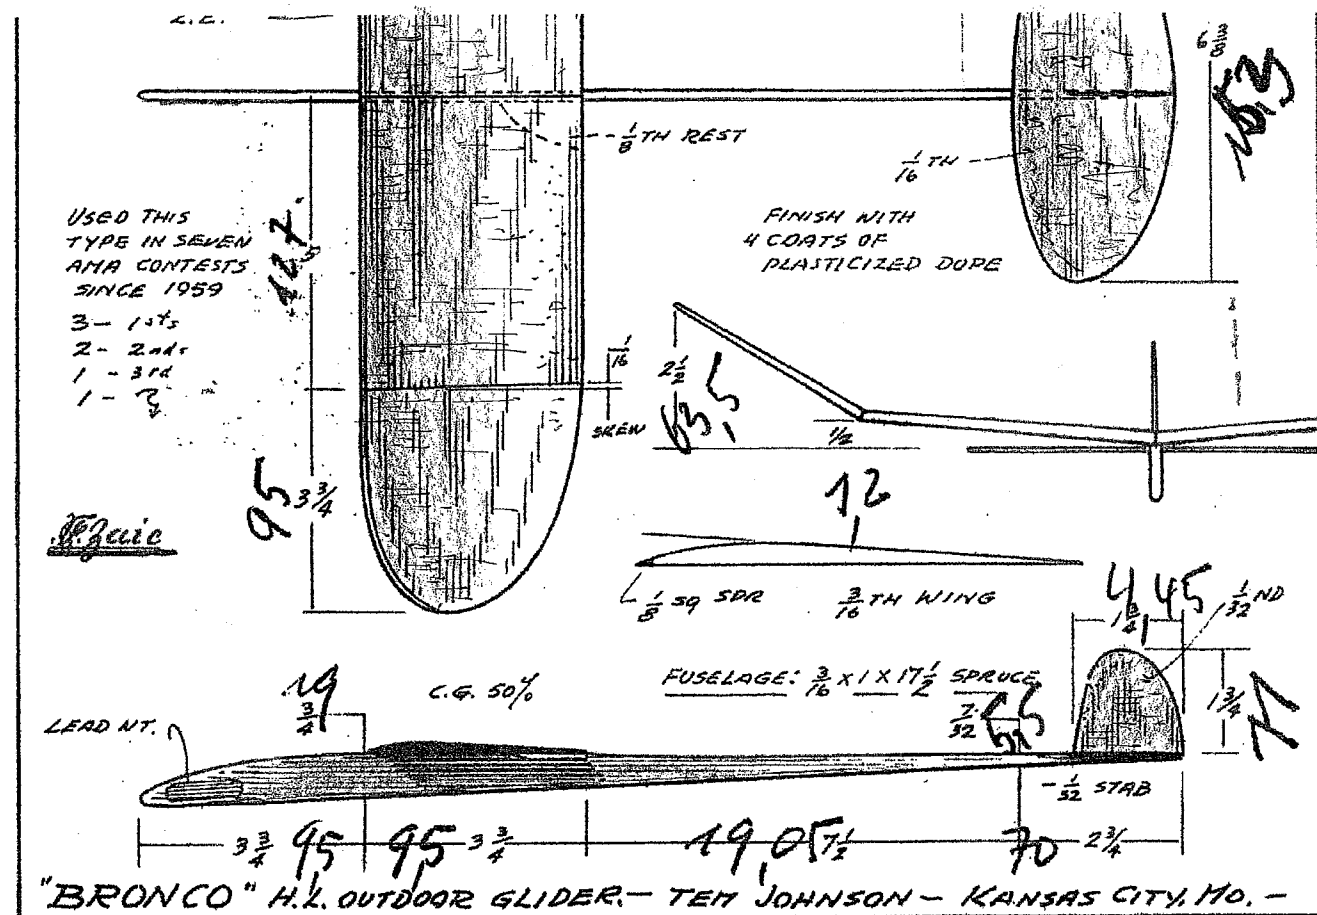 L.E.
1/8 TH REST
1/16 TH
6 3/8
16,3
USED THIS
TYPE IN SEVEN
AMA CONTESTS
SINCE 1959
3 - 1sts
2 - 2nds
1 - 3rd
1 -
127.
5
FINISH WITH
4 COATS OF
PLASTICIZED DOPE
1/16
SKEW
2 1/2
63,5
1/2
95 3 3/4
F. Zaic
1,2
1/8 SQ SPR
3/16 TH WING
4,45
1 3/4
1/32 ND
19
3/4
C.G. 50%
FUSELAGE: 3/16 X 1 X 17 1/2 SPRUCE
7/32
5,5
1 3/4
LEAD WT.
- 1/32 STAB
3 3/4 9,5 9,5 3 3/4 19,05 7 1/2 70 2 3/4
"BRONCO" H.L. OUTDOOR GLIDER. - TEM JOHNSON - KANSAS CITY. MO. -